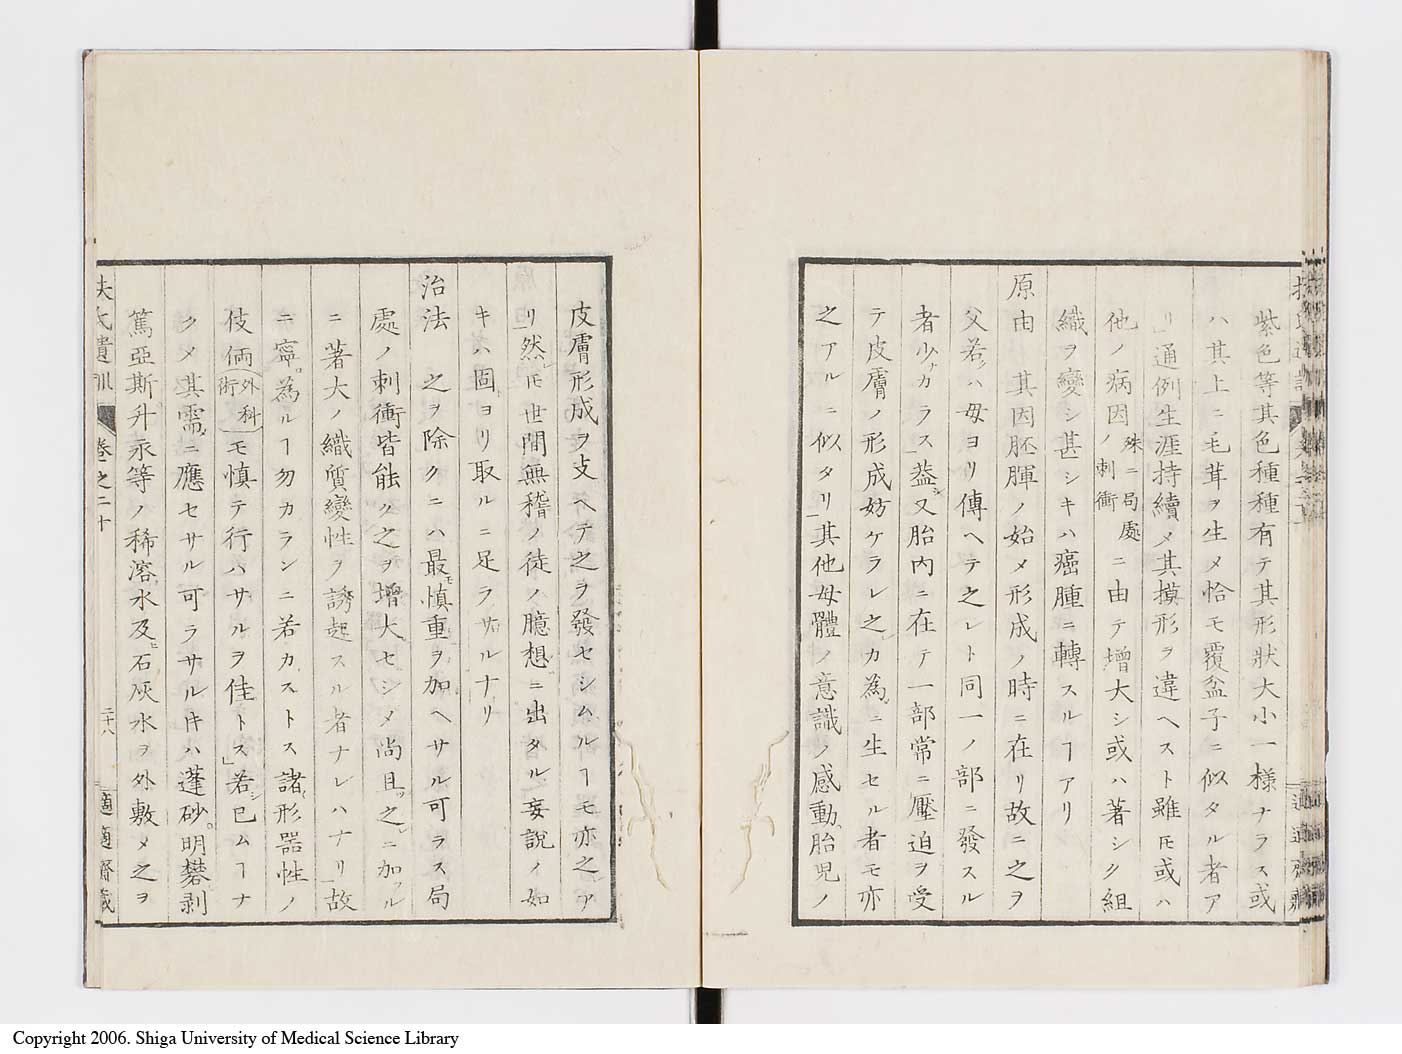 紫色等其色種種有テ其形狀大小一様ナラス或
ハ其上ニ毛茸ヲ生メ恰モ覆盆子ニ似タル者ア
リ」通例生涯持續メ其摸形ヲ違ヘスト雖𪜈或ハ
他ノ病因殊ニ局處ノ刺衝ニ由テ增大シ或ハ著シク組
織ヲ變シ甚シキハ癌腫ニ轉スルヿアリ
原由 其因胚腪ノ始メ形成ノ時ニ在リ故ニ之ヲ
父若クハ毋ヨリ傳ヘテ之レト同一ノ部ニ發スル
者少ナカラス」葢シ又胎内ニ在テ一部常ニ壓迫ヲ受
テ皮膚ノ形成妨ケラレ之カ為ニ生セル者モ亦
之アルニ似タリ」其他毋體ノ意識ノ感動、胎兒ノ
皮膚形成ヲ攴ヘテ之ヲ發セシムルヿモ亦之レア
リ」然レ𪜈世間無稽ノ徒ノ臆想ニ出タル妄說ノ如
キハ固ヨリ取ルニ足ラサルナリ
治法 之ヲ除クニハ最モ慎重ヲ加ヘサル可ラス局
處ノ刺衝皆能ク之ヲ增大セシメ尚且ツ之レニ加フル
ニ著大ノ織質變性ヲ誘起スル者ナレハナリ」故
ニ寧ロ為ルヿ勿カランニ若カストス諸形器性ノ
伎倆(外科術)モ慎テ行ハサルヲ佳トス」若シ已ムヿナ
クメ其需ニ應セサル可ラサル𪜈ハ蓬砂。明礬剥
篤亞斯升汞等ノ稀溶水及ヒ石灰水ヲ外敷メ之ヲ
扶氏遺訓 卷之二十 二十八 適適齋藏